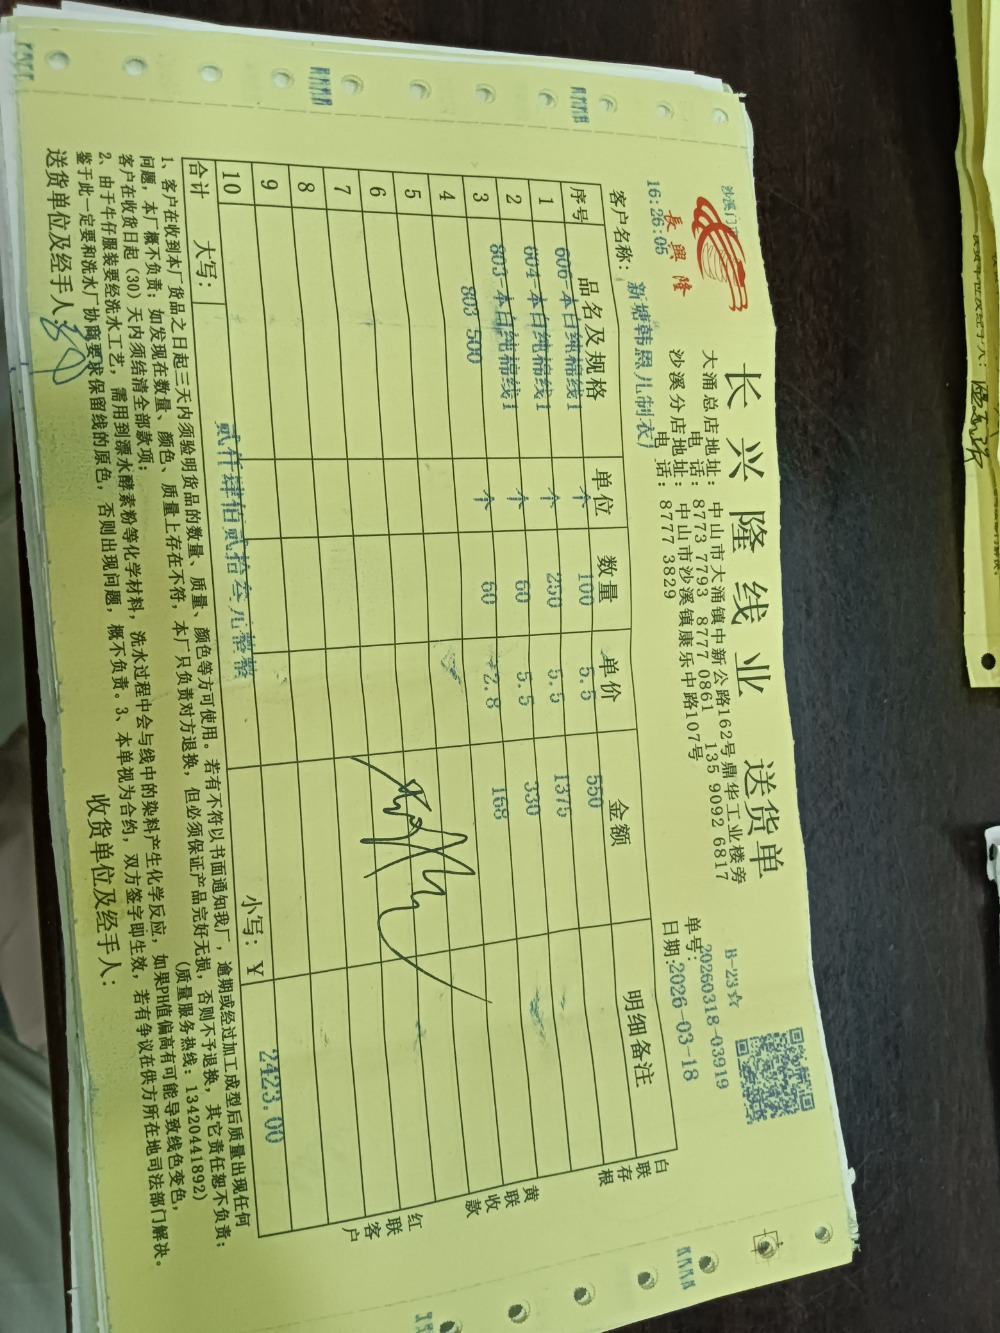 長興隆
长兴隆线业 送货单
大涌总店地址: 中山市大涌镇中新公路162号鼎华工业楼旁
电 话: 8773 7793 8777 0861 135 9092 6817
沙溪分店地址: 中山市沙溪镇康乐中路107号
电 话: 8777 3829
B-23☆
单号: 20260318-03919
日期: 2026-03-18
16:26:05
客户名称: 新塘韩恩儿制衣厂
序号 品名及规格 单位 数量 单价 金额 明细备注
1 606-本白纯棉线1 个 100 5.5 550
2 604-本白纯棉线1 个 250 5.5 1375
3 803-本白纯棉线1 个 60 5.5 330
4 803 500 个 60 2.8 168
5
6
7
8
9
10
合计 大写: 贰仟肆佰贰拾叁元整 小写: ¥ 2423.00
白联存根
黄联收款
红联客户
1、客户在收到本厂货品之日起三天内须验明货品的数量、质量、颜色等方可使用。若有不符以书面通知我厂，逾期或经过加工成型后质量出现任何
问题，本厂概不负责；如发现在数量、颜色、质量上存在不符，本厂只负责对方退换，但必须保证产品完好无损，否则不予退换，其它责任恕不负责；
客户在收货日起（30）天内须结清全部款项； (质量服务热线: 13420441892)
2、由于牛仔服装要经洗水工艺，需用到漂水酵素粉等化学材料，洗水过程中会与线中的染料产生化学反应，如果PH值偏高有可能导致线色变色，
鉴于此一定要和洗水厂协商要求保留线的原色，否则出现问题，概不负责。3、本单视为合约，双方签字即生效，若有争议在供方所在地司法部门解决。
送货单位及经手人: 收货单位及经手人: